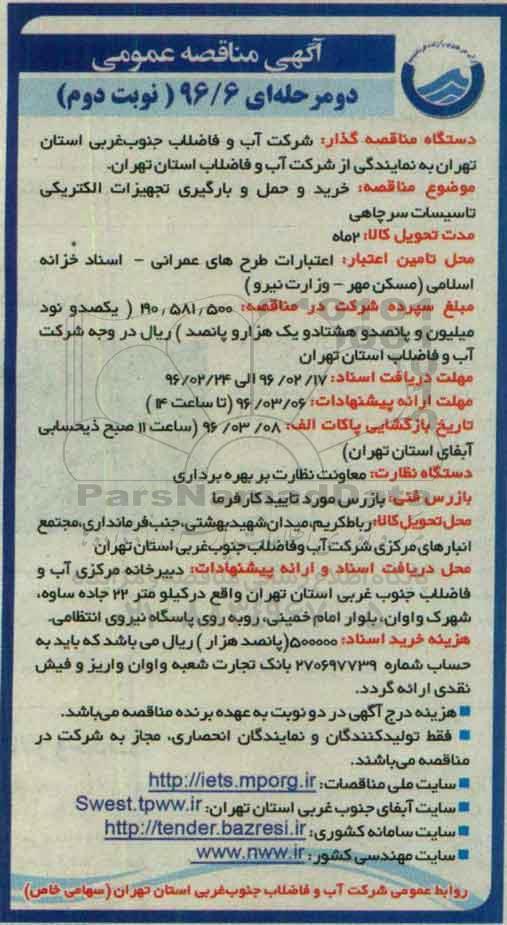 آگهی مناقصه عمومی
دومرحله‌ای ۹۶/۶ ( نوبت دوم)
دستگاه مناقصه گذار: شرکت آب و فاضلاب جنوب‌غربی استان
تهران به نمایندگی از شرکت آب و فاضلاب استان تهران.
موضوع مناقصه: خرید و حمل و بارگیری تجهیزات الکتریکی
تاسیسات سرچاهی
مدت تحویل کالا: ۲ماه
محل تامین اعتبار: اعتبارات طرح های عمرانی - اسناد خزانه
اسلامی (مسکن مهر - وزارت نیرو )
مبلغ سپرده شرکت در مناقصه: ۱۹۰,۵۸۱,۵۰۰ ( یکصدو نود
میلیون و پانصدو هشتادو یک هزارو پانصد ) ریال در وجه شرکت
آب و فاضلاب استان تهران
مهلت دریافت اسناد: ۹۶/۰۲/۱۷ الی ۹۶/۰۲/۲۴
مهلت ارائه پیشنهادات: ۹۶/۰۳/۰۶ (تا ساعت ۱۴ )
تاریخ بازگشایی پاکات الف: ۹۶/۰۳/۰۸ (ساعت ۱۱ صبح ذیحسابی
آبفای استان تهران)
دستگاه نظارت: معاونت نظارت بر بهره برداری
بازرس فنی: بازرس مورد تایید کارفرما
محل‌تحویل‌کالا: رباط‌کریم،میدان‌شهیدبهشتی،جنب‌فرمانداری،مجتمع
انبارهای مرکزی شرکت آب وفاضلاب جنوب‌غربی استان تهران
محل دریافت اسناد و ارائه پیشنهادات: دبیرخانه مرکزی آب و
فاضلاب جنوب غربی استان تهران واقع درکیلو متر ۲۲ جاده ساوه،
شهرک واوان، بلوار امام خمینی، روبه روی پاسگاه نیروی انتظامی.
هزینه خرید اسناد: ۵۰۰۰۰۰(پانصد هزار ) ریال می باشد که باید به
حساب شماره ۲۷۰۶۹۷۷۳۹ بانک تجارت شعبه واوان واریز و فیش
نقدی ارائه گردد.
■ هزینه درج آگهی در دو نوبت به عهده برنده مناقصه می‌باشد.
■ فقط تولیدکنندگان و نمایندگان انحصاری، مجاز به شرکت در
مناقصه می‌باشند.
■ سایت ملی مناقصات: http://iets.mporg.ir
■ سایت آبفای جنوب غربی استان تهران: Swest.tpww.ir
■ سایت سامانه کشوری: http://tender.bazresi.ir
■ سایت مهندسی کشور: www.nww.ir
روابط عمومی شرکت آب و فاضلاب جنوب‌غربی استان تهران (سهامی خاص)